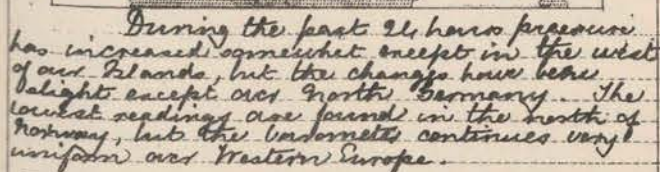 During the past 24 hours pressure
has increased somewhat except in the west
of our Islands, but the changes have been
slight except over North Germany. The
lowest readings are found in the north of
Norway, but the barometer continues very
uniform over Western Europe.